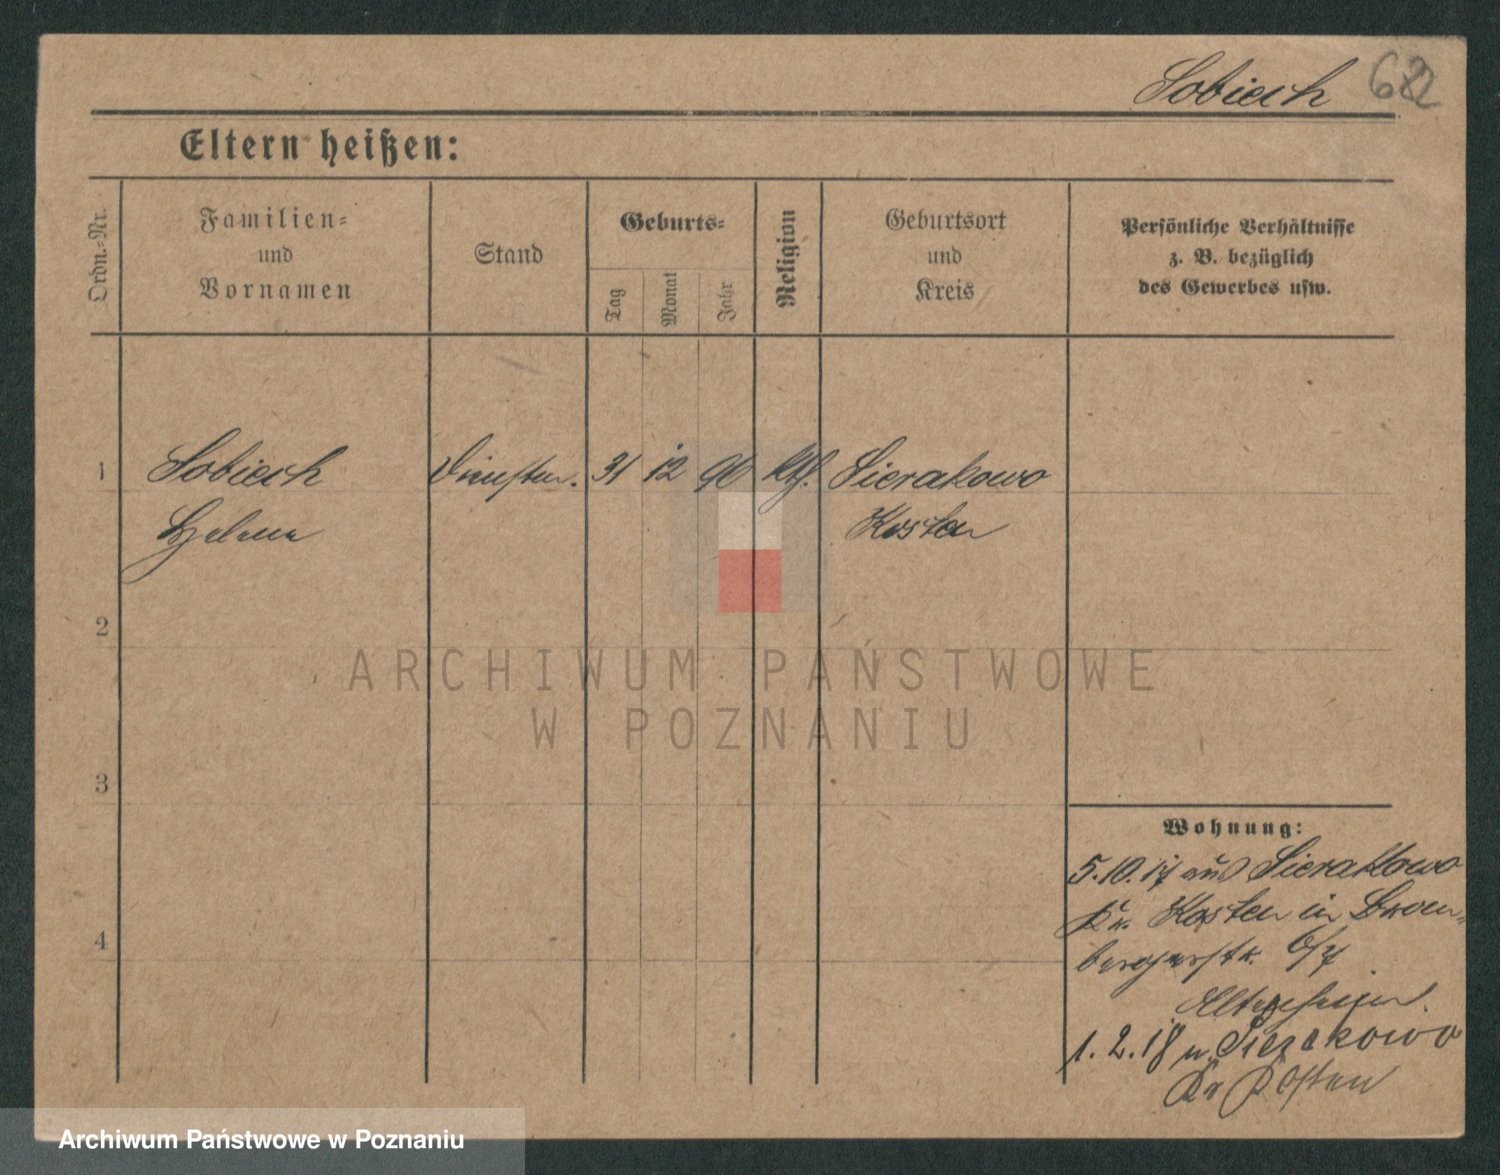 Sobiech 622
Eltern heißen:
Ordn.-Nr.
Familien-
und
Vornamen
Stand
Geburts-
Tag
Monat
Jahr
Religion
Geburtsort
und
Kreis
Persönliche Verhältnisse
z. B. bezüglich
des Gewerbes usw.
1 Sobiech 31 12 96 kth. Sierakowo
Helena Kosten
2
3
4
Wohnung:
5.10.17 aus Sierakowo
Kr. Kosten in Brom-
bergerstr. 6/7
1. 2. 18 n. Sierakowo
Kr Kosten
ARCHIWUM PAŃSTWOWE
W POZNANIU
Archiwum Państwowe w Poznaniu